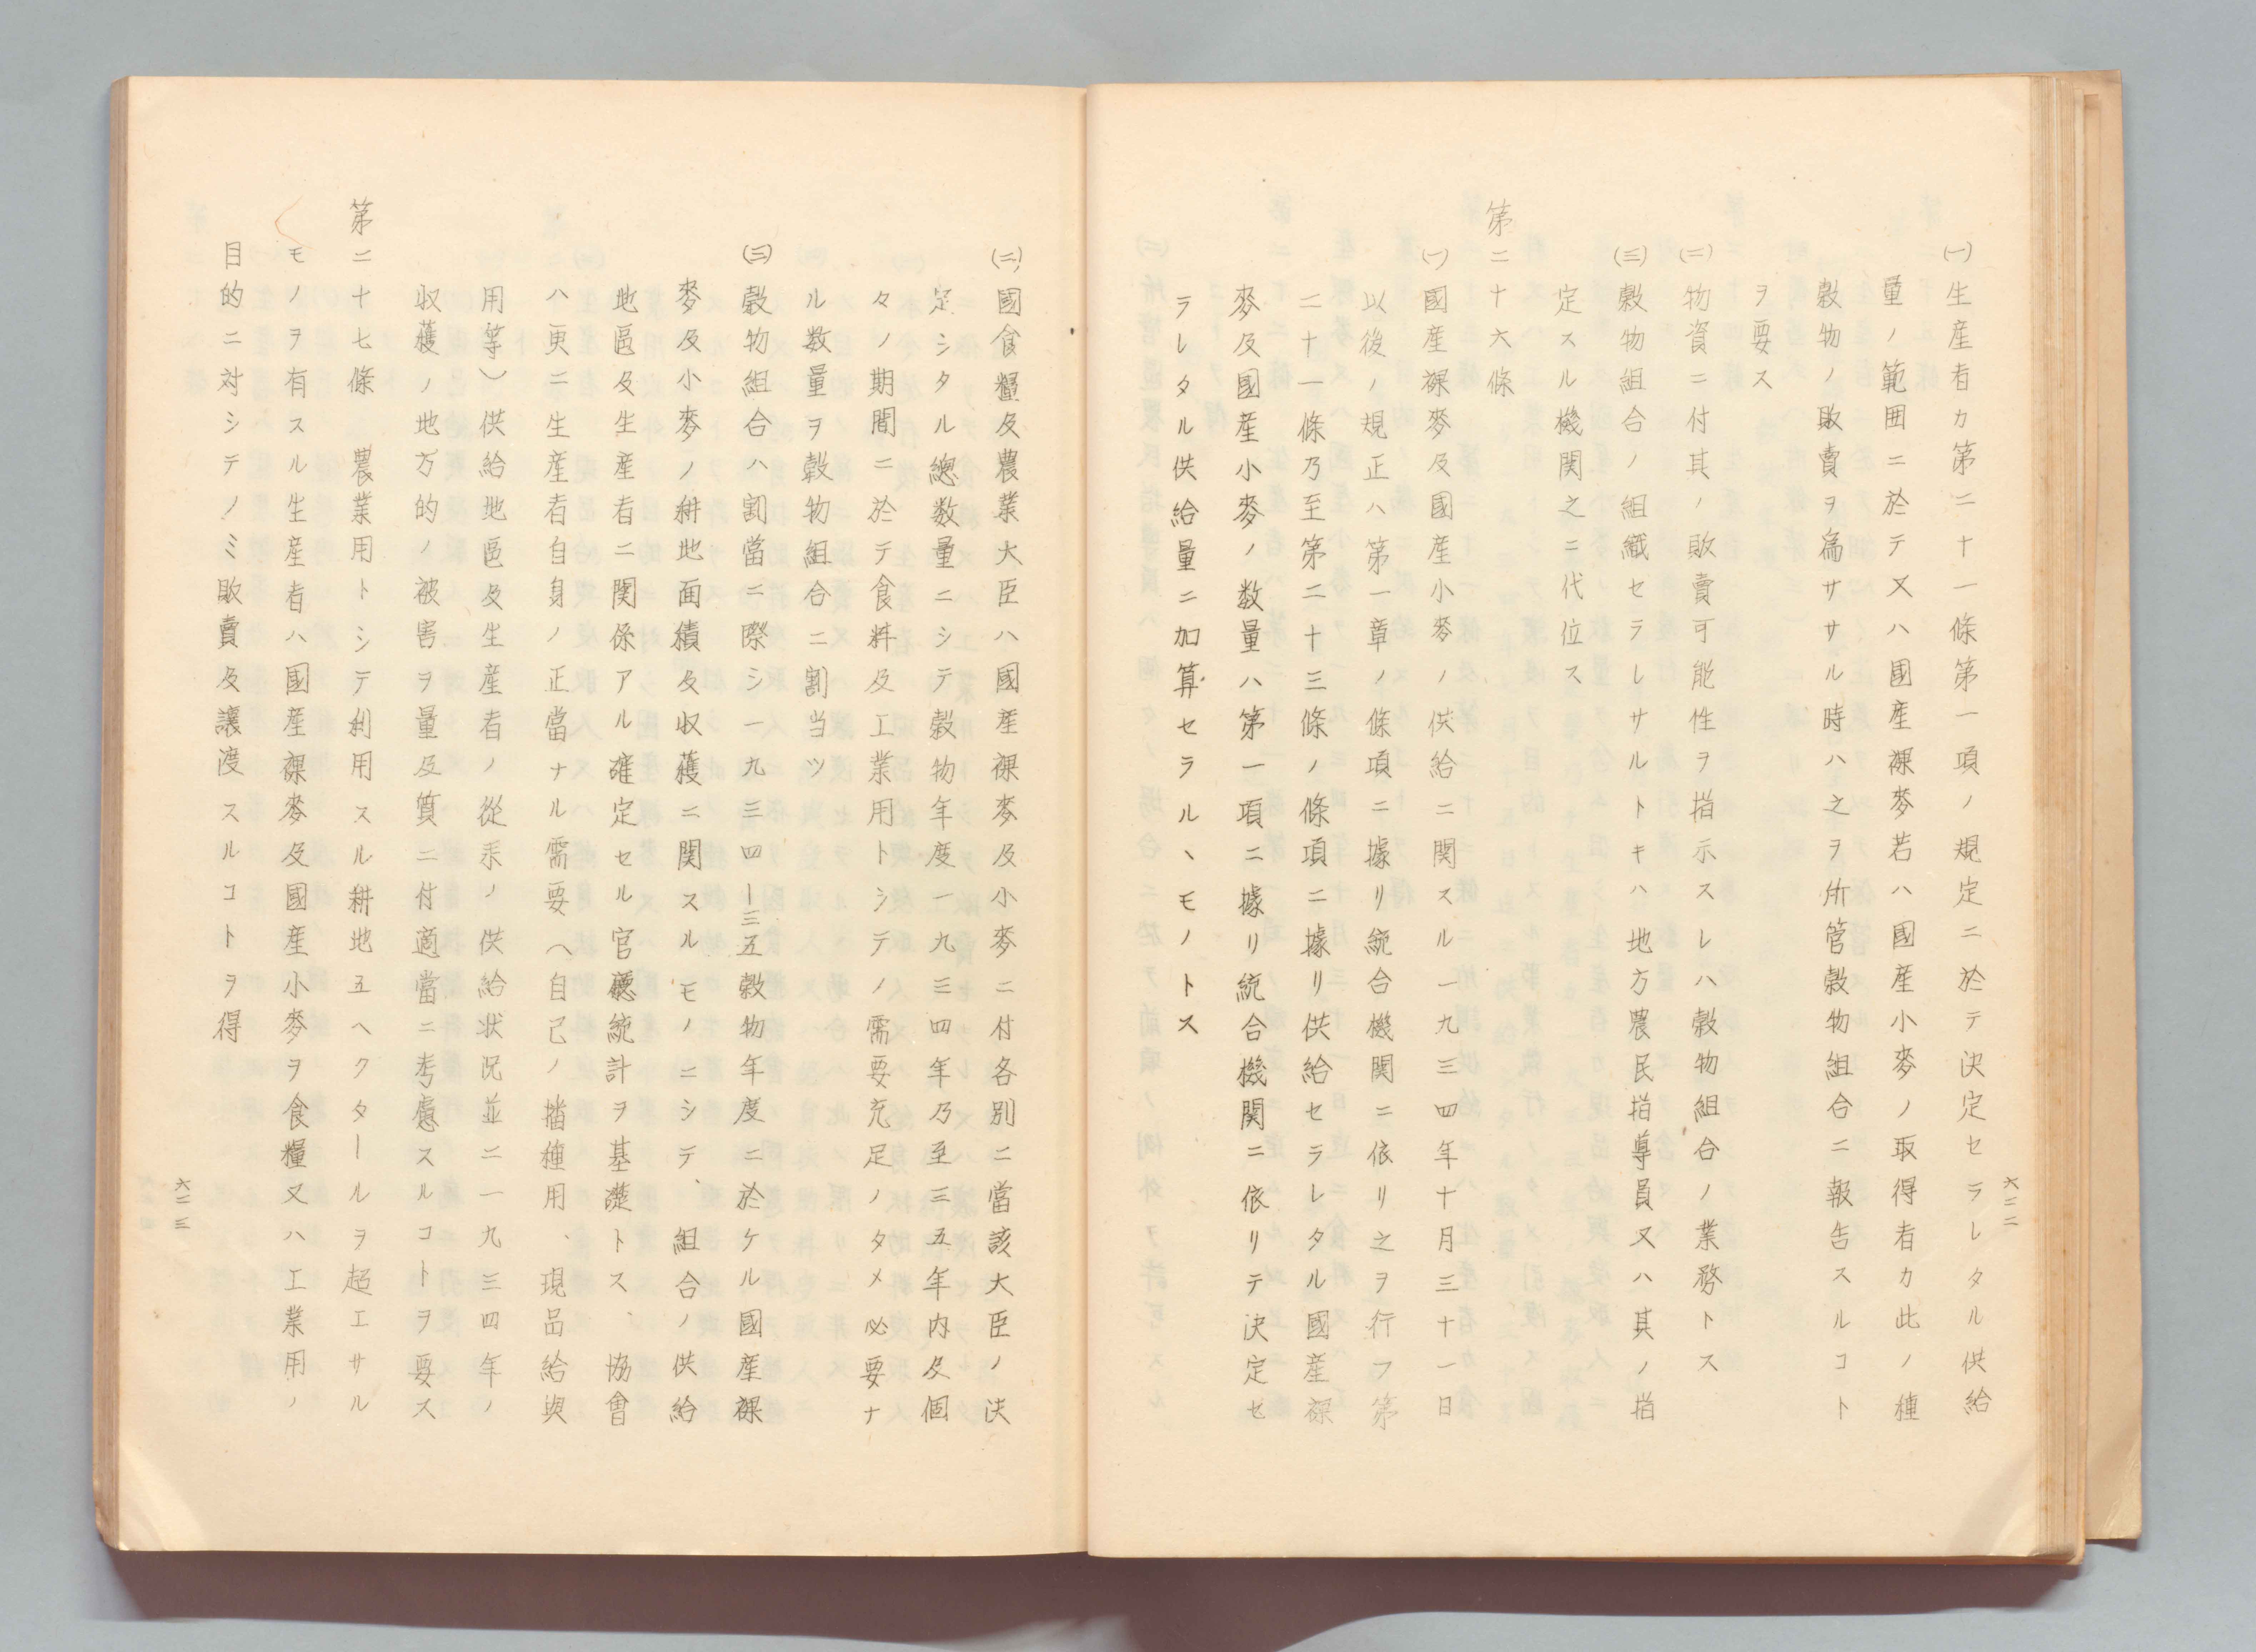 六二二
㈠生産者カ第二十一條第一項ノ規定ニ於テ決定セラレタル供給
量ノ範囲ニ於テ又ハ國産裸麥若ハ國産小麥ノ取得者カ此ノ種
穀物ノ販賣ヲ爲サザル時ハ之ヲ所管穀物組合ニ報告スルコト
ヲ要ス
㈡物資ニ付其ノ販賣可能性ヲ指示スレハ穀物組合ノ業務トス
㈢穀物組合ノ組織セラレサルトキハ地方農民指導員又ハ其ノ指
定スル機関之ニ代位ス
第二十六條
㈠國産裸麥及國産小麥ノ供給ニ関スル一九三四年十月三十一日
以後ノ規正ハ第一章ノ條項ニ據リ統合機関ニ依リ之ヲ行フ第
二十一條乃至第二十三條ノ條項ニ據リ供給セラレタル國産裸
麥及國産小麥ノ数量ハ第一項ニ據リ統合機関ニ依リテ決定セ
ラレタル供給量ニ加算セラル丶モノトス
㈡國食糧及農業大臣ハ國産裸麥及小麥ニ付各別ニ當該大臣ノ決
定シタル總数量ニシテ穀物年度一九三四年乃至三五年内及個
々ノ期間ニ於テ食料及工業用トシテノ需要充足ノタメ必要ナ
ル数量ヲ穀物組合ニ割当ツ
㈢穀物組合ハ割當ニ際シ一九三四ー三五穀物年度ニ於ケル國産裸
麥及小麥ノ耕地面積及収穫ニ関スルモノニシテ、組合ノ供給
地區及生産者ニ関係アル確定セル官廳統計ヲ基礎トス、協會
ハ更ニ生産者自身ノ正當ナル需要（自己ノ播種用、現品給與
用等）供給地區及生産者ノ從来ノ供給状況並ニ一九三四年ノ
収穫ノ地方的ノ被害ヲ量及質ニ付適當ニ考慮スルコトヲ要ス
第二十七條　農業用トシテ利用スル耕地五ヘクタールヲ超エサル
モノヲ有スル生産者ハ國産裸麥及國産小麥ヲ食糧又ハ工業用ノ
目的ニ対シテノミ販賣及讓渡スルコトヲ得
六二三